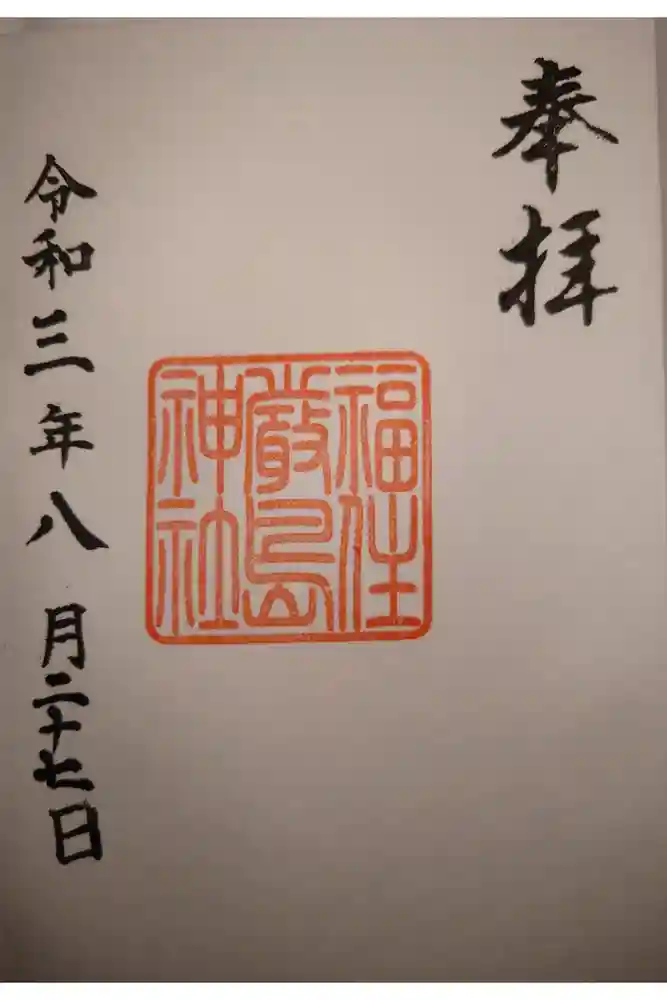 奉拝
福住
厳島
神社
令和三年八月二十七日